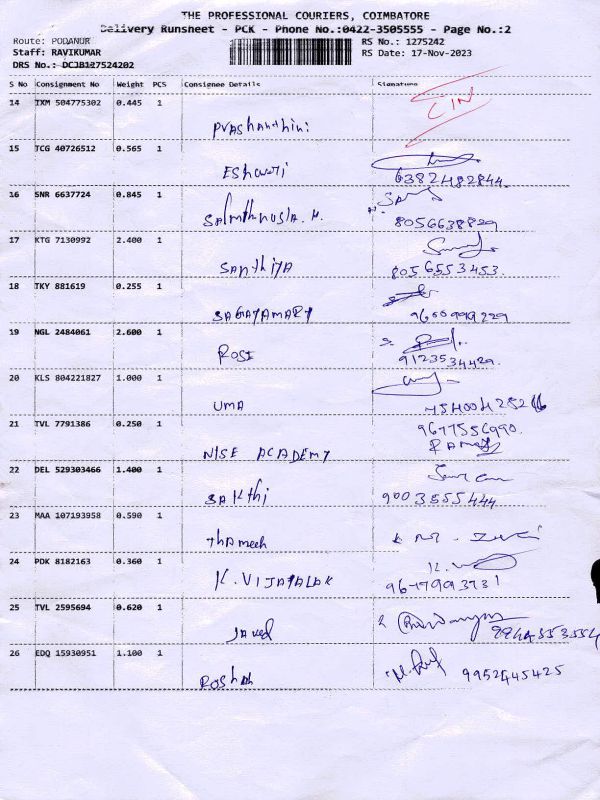 THE PROFESSIONAL COURIERS, COIMBATORE
Delivery Runsheet - PCK - Phone No.:0422-3505555 - Page No.:2
Route: PODANUR
Staff: RAVIKUMAR
DRS No.: DCJB127524202
RS No.: 1275242
RS Date: 17-Nov-2023
S No Consignment No Weight PCS Consignee Details Signature
14 IXM 504775302 0.445 1
Prashanthini
15 TCG 40726512 0.565 1
Eshwari 6382482844.
16 SNR 6637724 0.845 1
8056638829
17 KTG 7130992 2.400 1
Santhiya 8056553453.
18 TKY 881619 0.255 1
SAGAYAMARY 9600999229
19 NGL 2484061 2.600 1
ROSI 9123534429.
20 KLS 804221827 1.000 1
UMA
21 TVL 7791386 0.250 1 9677556990.
NISE ACADEMY
22 DEL 529303466 1.400 1
SAKthi 9003555444
23 MAA 107193958 0.590 1
Thameeh
24 PDK 8182163 0.360 1
K. VIJAYALAK 9677993731
25 TVL 2595694 0.620 1
Javed
26 EDQ 15930951 1.100 1
Roshah 9952445425